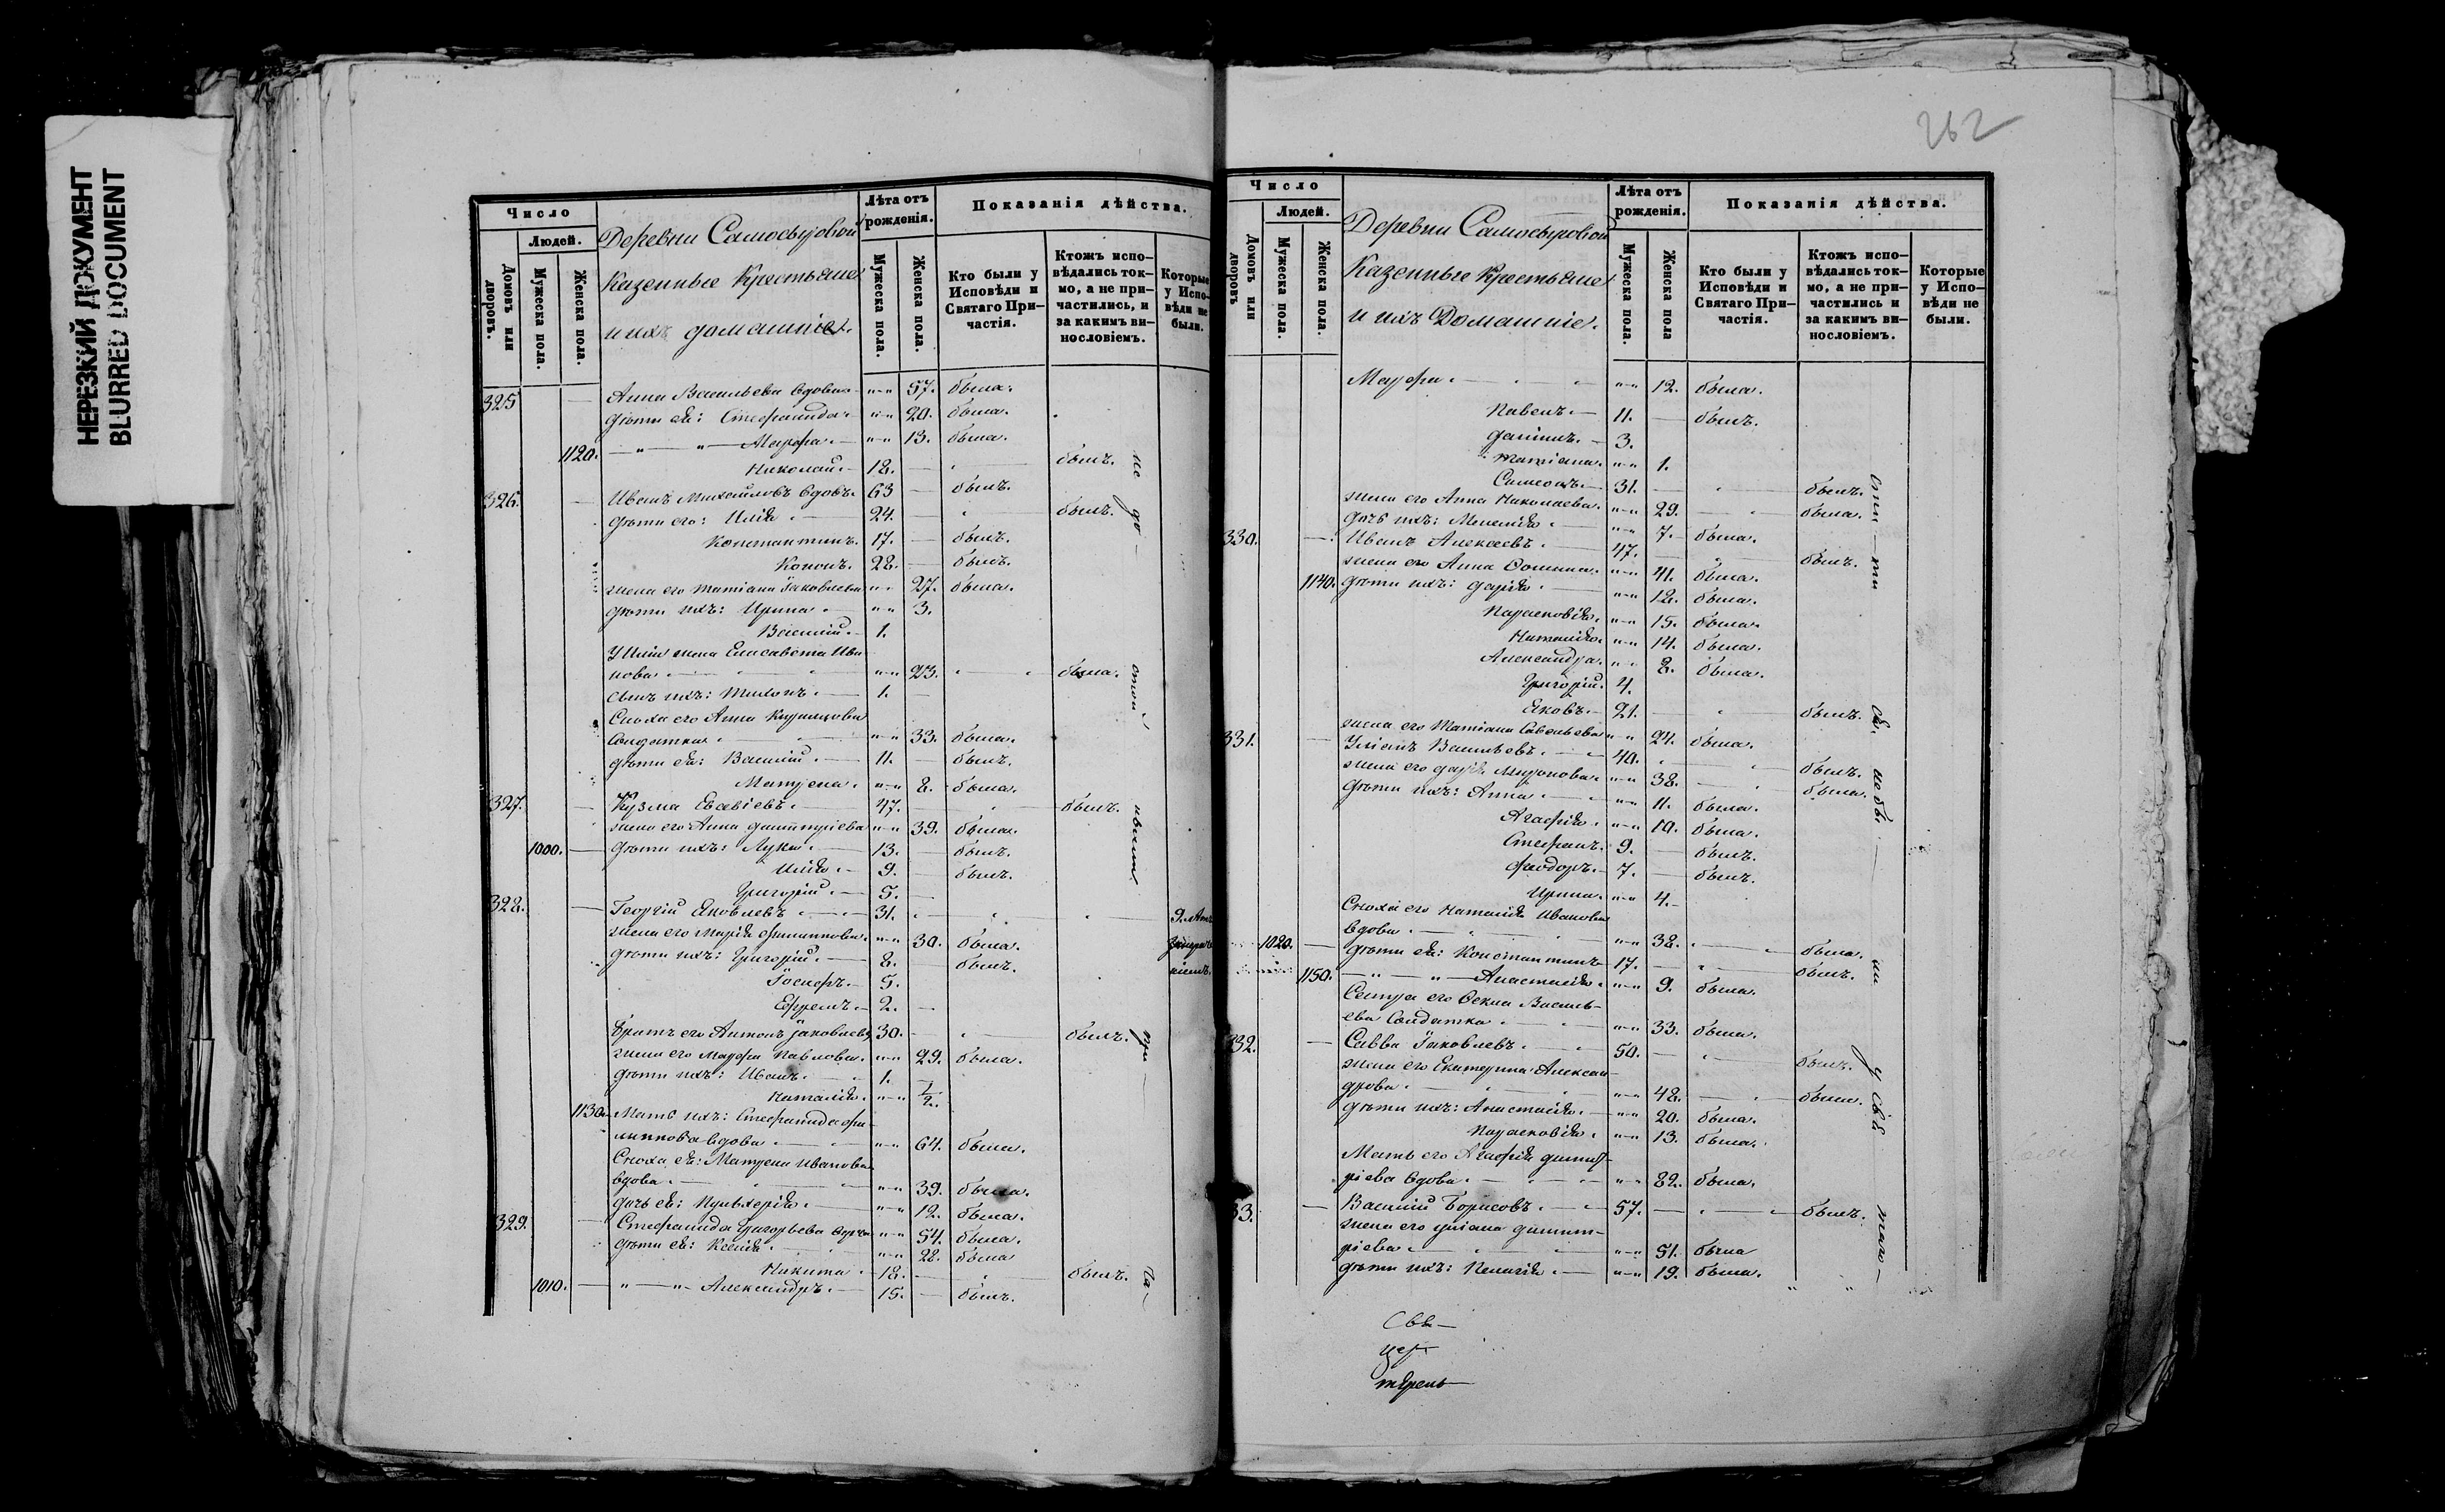 НЕРЕЗКИЙ ДОКУМЕНТ
BLURRED DOCUMENT
Число
Людей.
Домовъ или дворовъ.
Мужеска пола.
Женска пола.
Деревни Самосыровой
Казенные Крестьяне
и ихъ домашніе.
Лѣта отъ рожденія.
Мужеска пола.
Женска пола.
Показанія дѣйства.
Кто были у Исповѣди и Святаго Причастія.
Ктожъ исповѣдались токмо, а не причастились, и за какимъ винословіемъ.
Которые у Исповѣди не были.
325 Анна Васильева вдова 57. была.
дѣти ея: Стефанида 20. была.
1120. Марфа 13. была.
Николай 18. былъ.
326. Иванъ Михайловъ вдовъ. 63 былъ.
дѣти его: Илія 24. былъ.
Константинъ. 17. былъ.
Кононъ. 28. былъ.
жена его Татіана Іаковлева 27. была.
дѣти ихъ: Ирина 3.
Василій 1.
У Иліи жена Елисавета Ива
нова 23. была.
сынъ ихъ: Тихонъ 1.
Сноха его Анна
Солдатка 33. была.
дѣти ея: Василій 11. былъ.
Матрена 8. была.
327. Кузма Евсевіевъ 47. былъ.
жена его Анна Димитріева 39. была.
1000. дѣти ихъ: Лука 13. былъ.
Илія 9. былъ.
Григорій 5.
328. Георгій Яковлевъ 31. 9. лѣтъ
жена его Марія Филиппова 30. была.
дѣти ихъ: Григорій 8. былъ.
Іосифъ. 5.
Ефремъ 2.
Братъ его Антонъ Іаковлевъ 30. былъ.
жена его Марфа Павлова. 29. была.
дѣти ихъ: Иванъ. 1.
Наталія. 1/2.
1130. Мать ихъ: Стефанида Фи
липпова вдова 64. была.
Сноха ея: Матрена Иванова
вдова 39. была.
дочь ея: Пульхерія 12. была.
329. Стефанида Григорьева вдова 54. была.
дѣти ея: Ксенія 22. была
Никита 18. былъ.
1010. Александръ 15. былъ.
не до — стой ча —
262
Число
Людей.
Домовъ или дворовъ
Мужеска пола.
Женска пола.
Деревни Самосыровой
Казенные Крестьяне
и ихъ Домашніе.
Лѣта отъ рожденія.
Мужеска пола.
Женска пола
Показанія дѣйства.
Кто были у Исповѣди и Святаго Причастія.
Ктожъ исповѣдались токмо, а не причастились и за какимъ винословіемъ.
Которые у Исповѣди не были.
Марфа 12. была.
Павелъ 11. былъ.
Даніилъ. 3.
Татіана. 1.
Самсонъ 31. былъ.
жена его Анна Николаева. 29. была.
дочь ихъ: Меланія 7. была.
330. Иванъ Алексѣевъ. 47. былъ.
жена его Анна Фомина. 41. была.
1140. дѣти ихъ: Дарія 18. была.
Парасковія. 15. была.
Наталія. 14. была.
Александра. 8. была.
Григорій. 4.
Яковъ. 21. былъ.
жена его Татіана Савельева 24. была.
331. Уліанъ Васильевъ. 40. былъ.
жена его Дарія Миронова. 38. была.
дѣти ихъ: Анна 11. была.
Агафія. 10. была.
Стефанъ. 9. былъ.
Феодоръ. 7. былъ.
Ирина. 4.
Сноха его Наталія Иванова
вдова 38. была.
1020. дѣти ея: Константинъ 17. былъ.
1150. Анастасія. 9. была.
Сестра его Фекла Василь
ева Солдатка 33. была.
332. Савва Іаковлевъ. 50. былъ.
жена его Екатерина Алексан
дрова 48. была.
дѣти ихъ: Анастасія. 20. была.
Парасковія. 13. была.
Мать его Агафія Димит
ріева вдова 82. была.
33. Василій Борисовъ. 57. былъ.
жена его Уліана Димит
ріева 51. была
дѣти ихъ: Пелагія 19. была.
сти — ти не ни у таго —
Свя —
цер